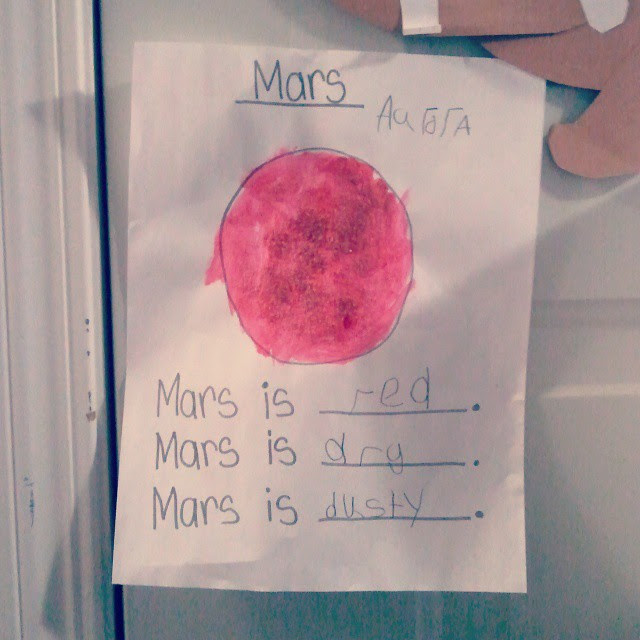 Mars
Aurora
Mars is red.
Mars is dry.
Mars is dusty.